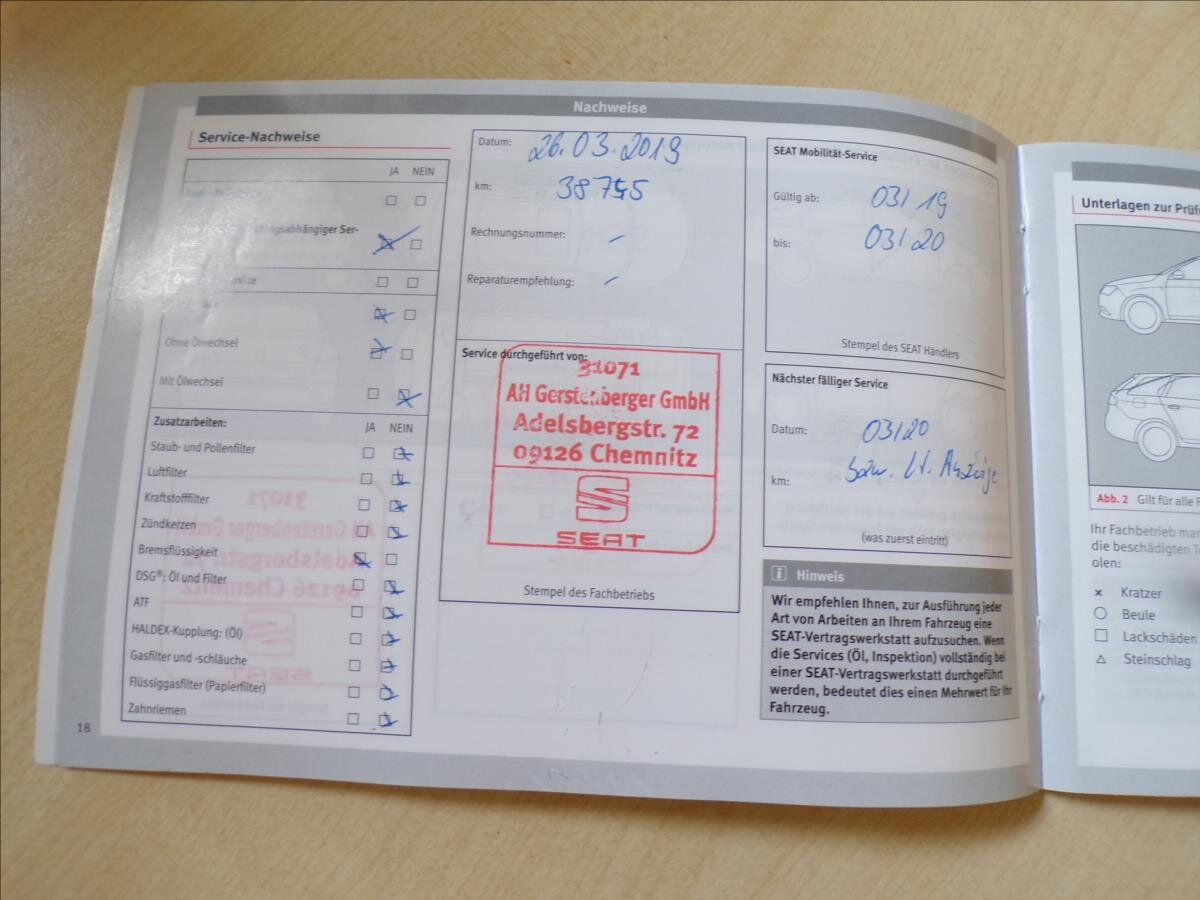 Nachweise
Service-Nachweise
JA NEIN
Ser-
Ohne Ölwechsel
Mit Ölwechsel
Zusatzarbeiten: JA NEIN
Staub- und Pollenfilter
Luftfilter
Kraftstofffilter
Zündkerzen
Bremsflüssigkeit
DSG®: Öl und Filter
ATF
HALDEX-Kupplung: (Öl)
Gasfilter und -schläuche
Flüssiggasfilter (Papierfilter)
Zahnriemen
18
Datum: 26.03.2019
km:
Rechnungsnummer: –
Reparaturempfehlung: –
Service durchgeführt von:
31071
AH Gerstenberger GmbH
Adelsbergstr. 72
09126 Chemnitz
SEAT
Stempel des Fachbetriebs
SEAT Mobilität-Service
Gültig ab: 03/19
bis: 03/20
Stempel des SEAT Händlers
Nächster fälliger Service
Datum: 03/20
km: bzw. lt. Anzeige
(was zuerst eintritt)
i Hinweis
Wir empfehlen Ihnen, zur Ausführung jeder
Art von Arbeiten an Ihrem Fahrzeug eine
SEAT-Vertragswerkstatt aufzusuchen. Wenn
die Services (Öl, Inspektion) vollständig bei
einer SEAT-Vertragswerkstatt durchgeführt
werden, bedeutet dies einen Mehrwert für Ihr
Fahrzeug.
Unterlagen zur Prüf
Abb. 2 Gilt für alle
Ihr Fachbetrieb mar
die beschädigten Te
olen:
Kratzer
Beule
Lackschäden
Steinschlag